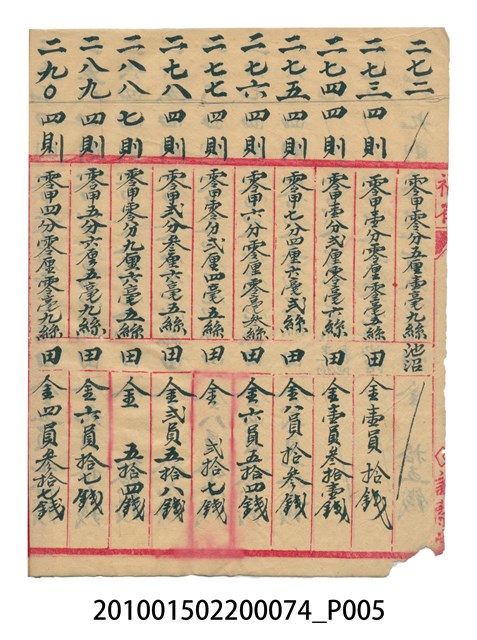 二七二 零甲零分五厘壹毫九絲 池沼
二七三 四則 零甲壹分零厘零毫五絲 田 金壹員 拾錢
二七四 四則 零甲壹分弍厘零毫六絲 田 金壹員叁拾壹錢
二七五 四則 零甲七分四厘六毫弍絲 田 金八員 拾叁錢
二七六 四則 零甲六分零厘零毫叁絲 田 金六員五拾四錢
二七七 四則 零甲零分弍厘四毫五絲 田 金 弍拾七錢
二七八 四則 零甲弍分叁厘六毫五絲 田 金弍員五拾八錢
二八八 七則 零甲零分九厘六毫五絲 田 金 五拾四錢
二八九 四則 零甲五分六厘五毫九絲 田 金六員 拾七錢
二九〇 四則 零甲四分零厘零毫九絲 田 金四員叁拾七錢
201001502200074_P005